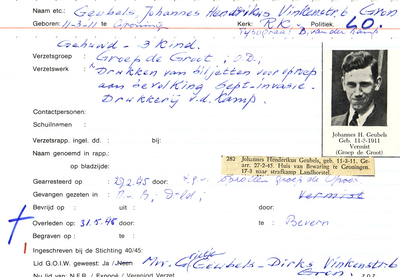 Naam etc.: Geubels Johannes Hendrikus Vinkenstr. 6 Gron
Geboren: 11-3-11 te Groningen Kerk: R.K. Politiek: LO.
Typograaf D. van der Kamp
Gehuwd - 3 kind.
Verzetsgroep : Groep de Groot, O.D.,
Verzetswerk : Drukken van biljetten voor oproep
aan bevolking bept-invasie.
Drukkerij v.d. Kamp.
Contactpersonen:
Schuilnamen :
Verzetsrapp. ingel. dd. : bij:
Naam genoemd in rapp.:
op bladzijde:
Johannes H. Geubels
Geb. 11-2-1911
Vermist
(Groep de Groot)
282 Johannes Henderikus Geubels, geb. 11-3-11, Ge-
arr. 27-2-45. Huis van Bewaring te Groningen.
17-3 naar strafkamp Landhorstel.
Gearresteerd op : 27.2.45 door: groep de Groot
Gevangen gezeten in : Vermist
Bevrijd op : door:
Overleden op: 31.5.45 door: te: Bevern
Begraven op : te:
Ingeschreven bij de Stichting 40/45:
Lid G.O.I.W. geweest: Ja / Neen Mw. G. Geubels-Dirks Vinkenstr. 6
Nu lid van N.F.R. / Exposé / Verenigd Verzet Gron.